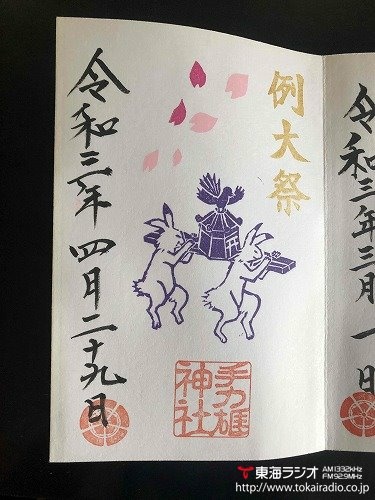 令和三年三月一日
例大祭
令和三年四月二十九日
手力雄
神社
東海ラジオ AM1332kHz
FM92.9MHz
http://www.tokairadio.co.jp